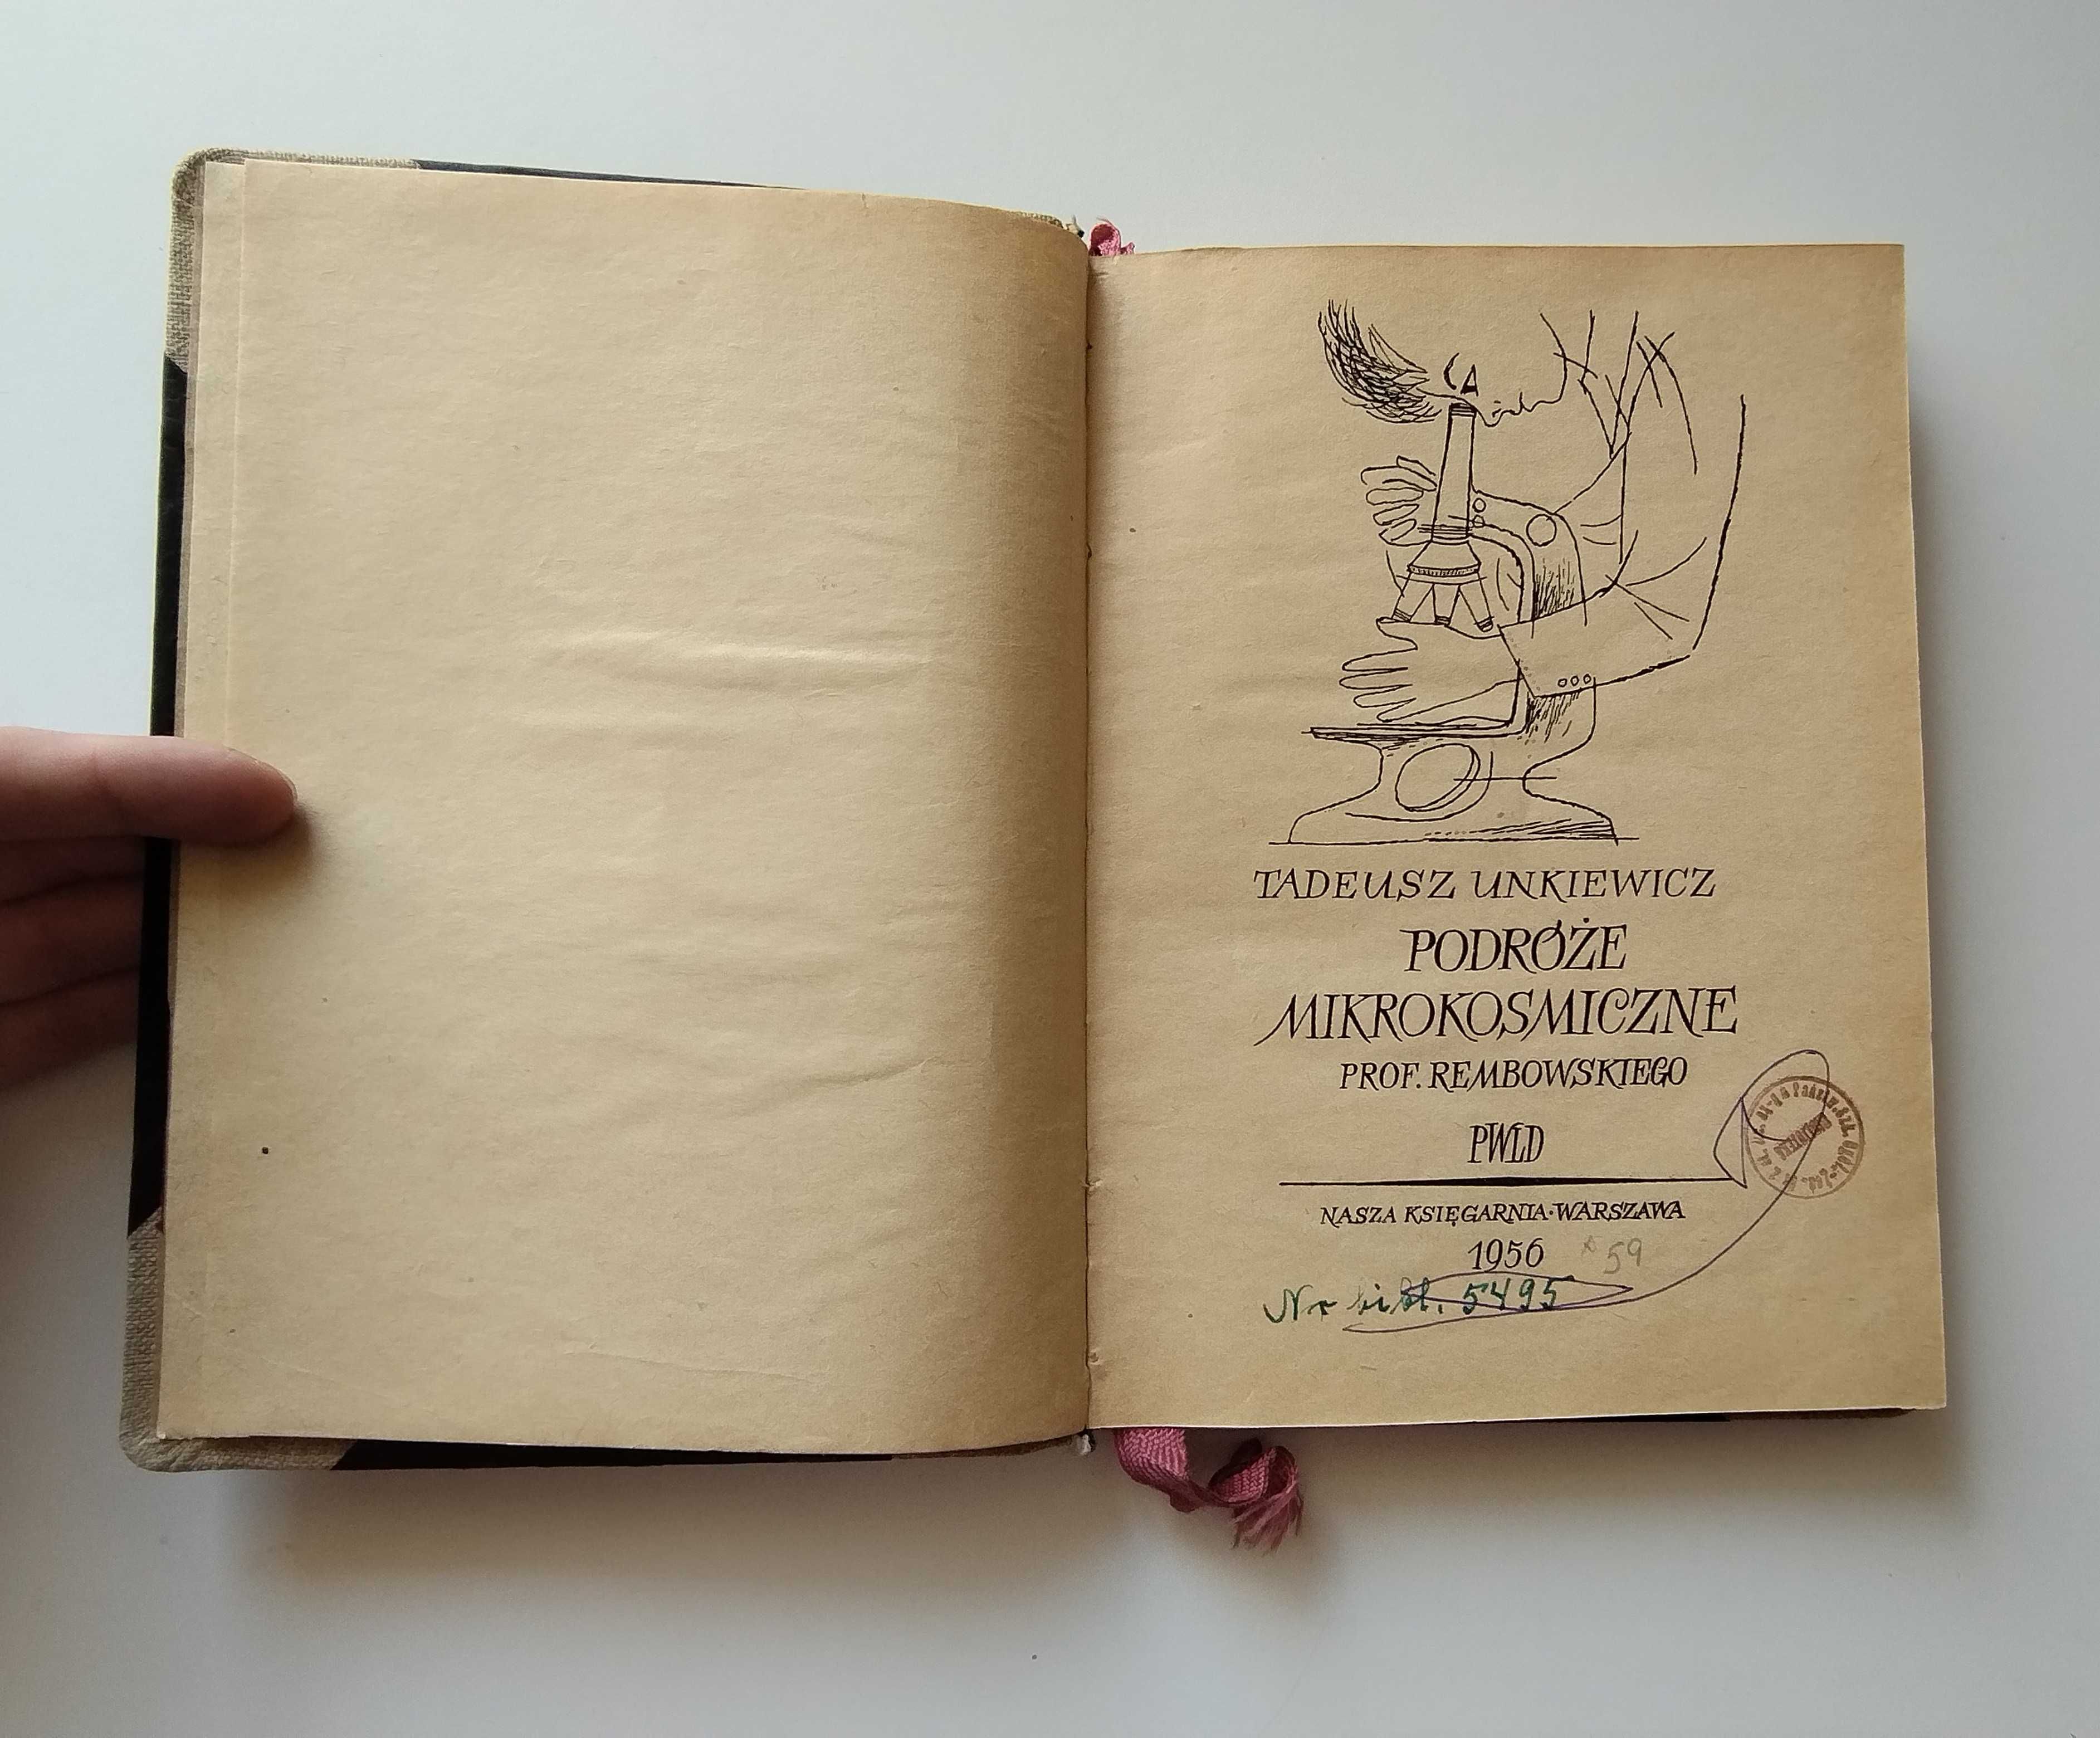 TADEUSZ UNKIEWICZ
PODRÓŻE
MIKROKOSMICZNE
PROF. REMBOWSKIEGO
PWLD
NASZA KSIĘGARNIA·WARSZAWA
1956
59
Nr bibl. 5495